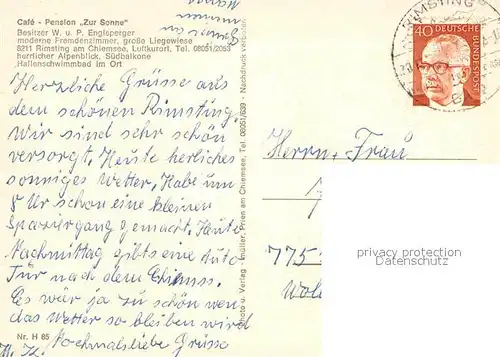 Café - Pension „Zur Sonne"
Besitzer W. u. P. Englsperger
moderne Fremdenzimmer, große Liegewiese
8211 Rimsting am Chiemsee, Luftkurort, Tel. 08051/2053
herrlicher Alpenblick, Südbalkone
Hallenschwimmbad im Ort
Herzliche Grüsse aus
dem schönen Rimsting.
Wir sind sehr schön
versorgt. Heute herliches
sonniges Wetter, Habe um
8 Ur schon eine kleinen
Spaziergang gemacht. Heute
Nachmittag gibts eine Auto
Tür nach dem Chimss.
Es wär ja zu schön wen
das Wetter so bleiben wird
Nochmals liebe Grüsse
Nr. H 85
Photo u. Verlag Müller, Prien am Chiemsee, Tel. 08051/639 - Nachdruck verboten
RIMSTING
40 DEUTSCHE
BUNDESPOST
Herrn, Frau
775
privacy protection
AnsichtskartenDatabase